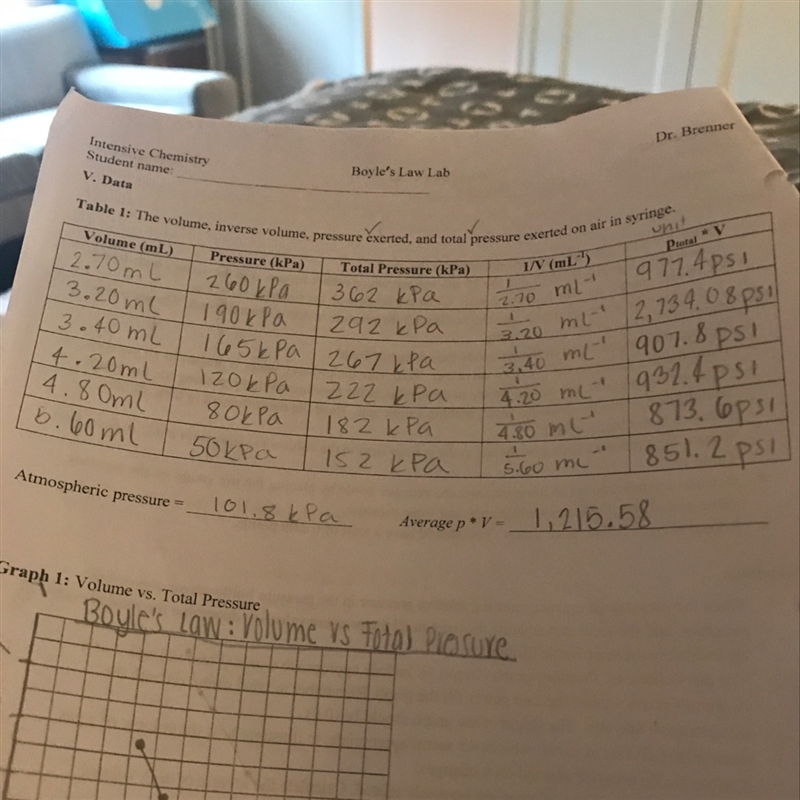 Intensive Chemistry
Dr. Brenner
Student name:
Boyle's Law Lab
V. Data
Table 1: The volume, inverse volume, pressure exerted, and total pressure exerted on air in syringe.
unit
Volume (mL) Pressure (kPa) Total Pressure (kPa) 1/V (mL⁻¹) Ptotal * V
2.70 mL 260 kPa 362 kPa 1/2.70 mL⁻¹ 977.4 psi
3.20 mL 190 kPa 292 kPa 1/3.20 mL⁻¹ 2,734.08 psi
3.40 mL 165 kPa 267 kPa 1/3.40 mL⁻¹ 907.8 psi
4.20 mL 120 kPa 222 kPa 1/4.20 mL⁻¹ 932.4 psi
4.80 ml 80 kPa 182 kPa 1/4.80 mL⁻¹ 873.6 psi
6.60 ml 50 kPa 152 kPa 1/5.60 mL⁻¹ 851.2 psi
Atmospheric pressure = 101.8 kPa Average p * V = 1,215.58
Graph 1: Volume vs. Total Pressure
Boyle's Law: Volume vs Total Pressure